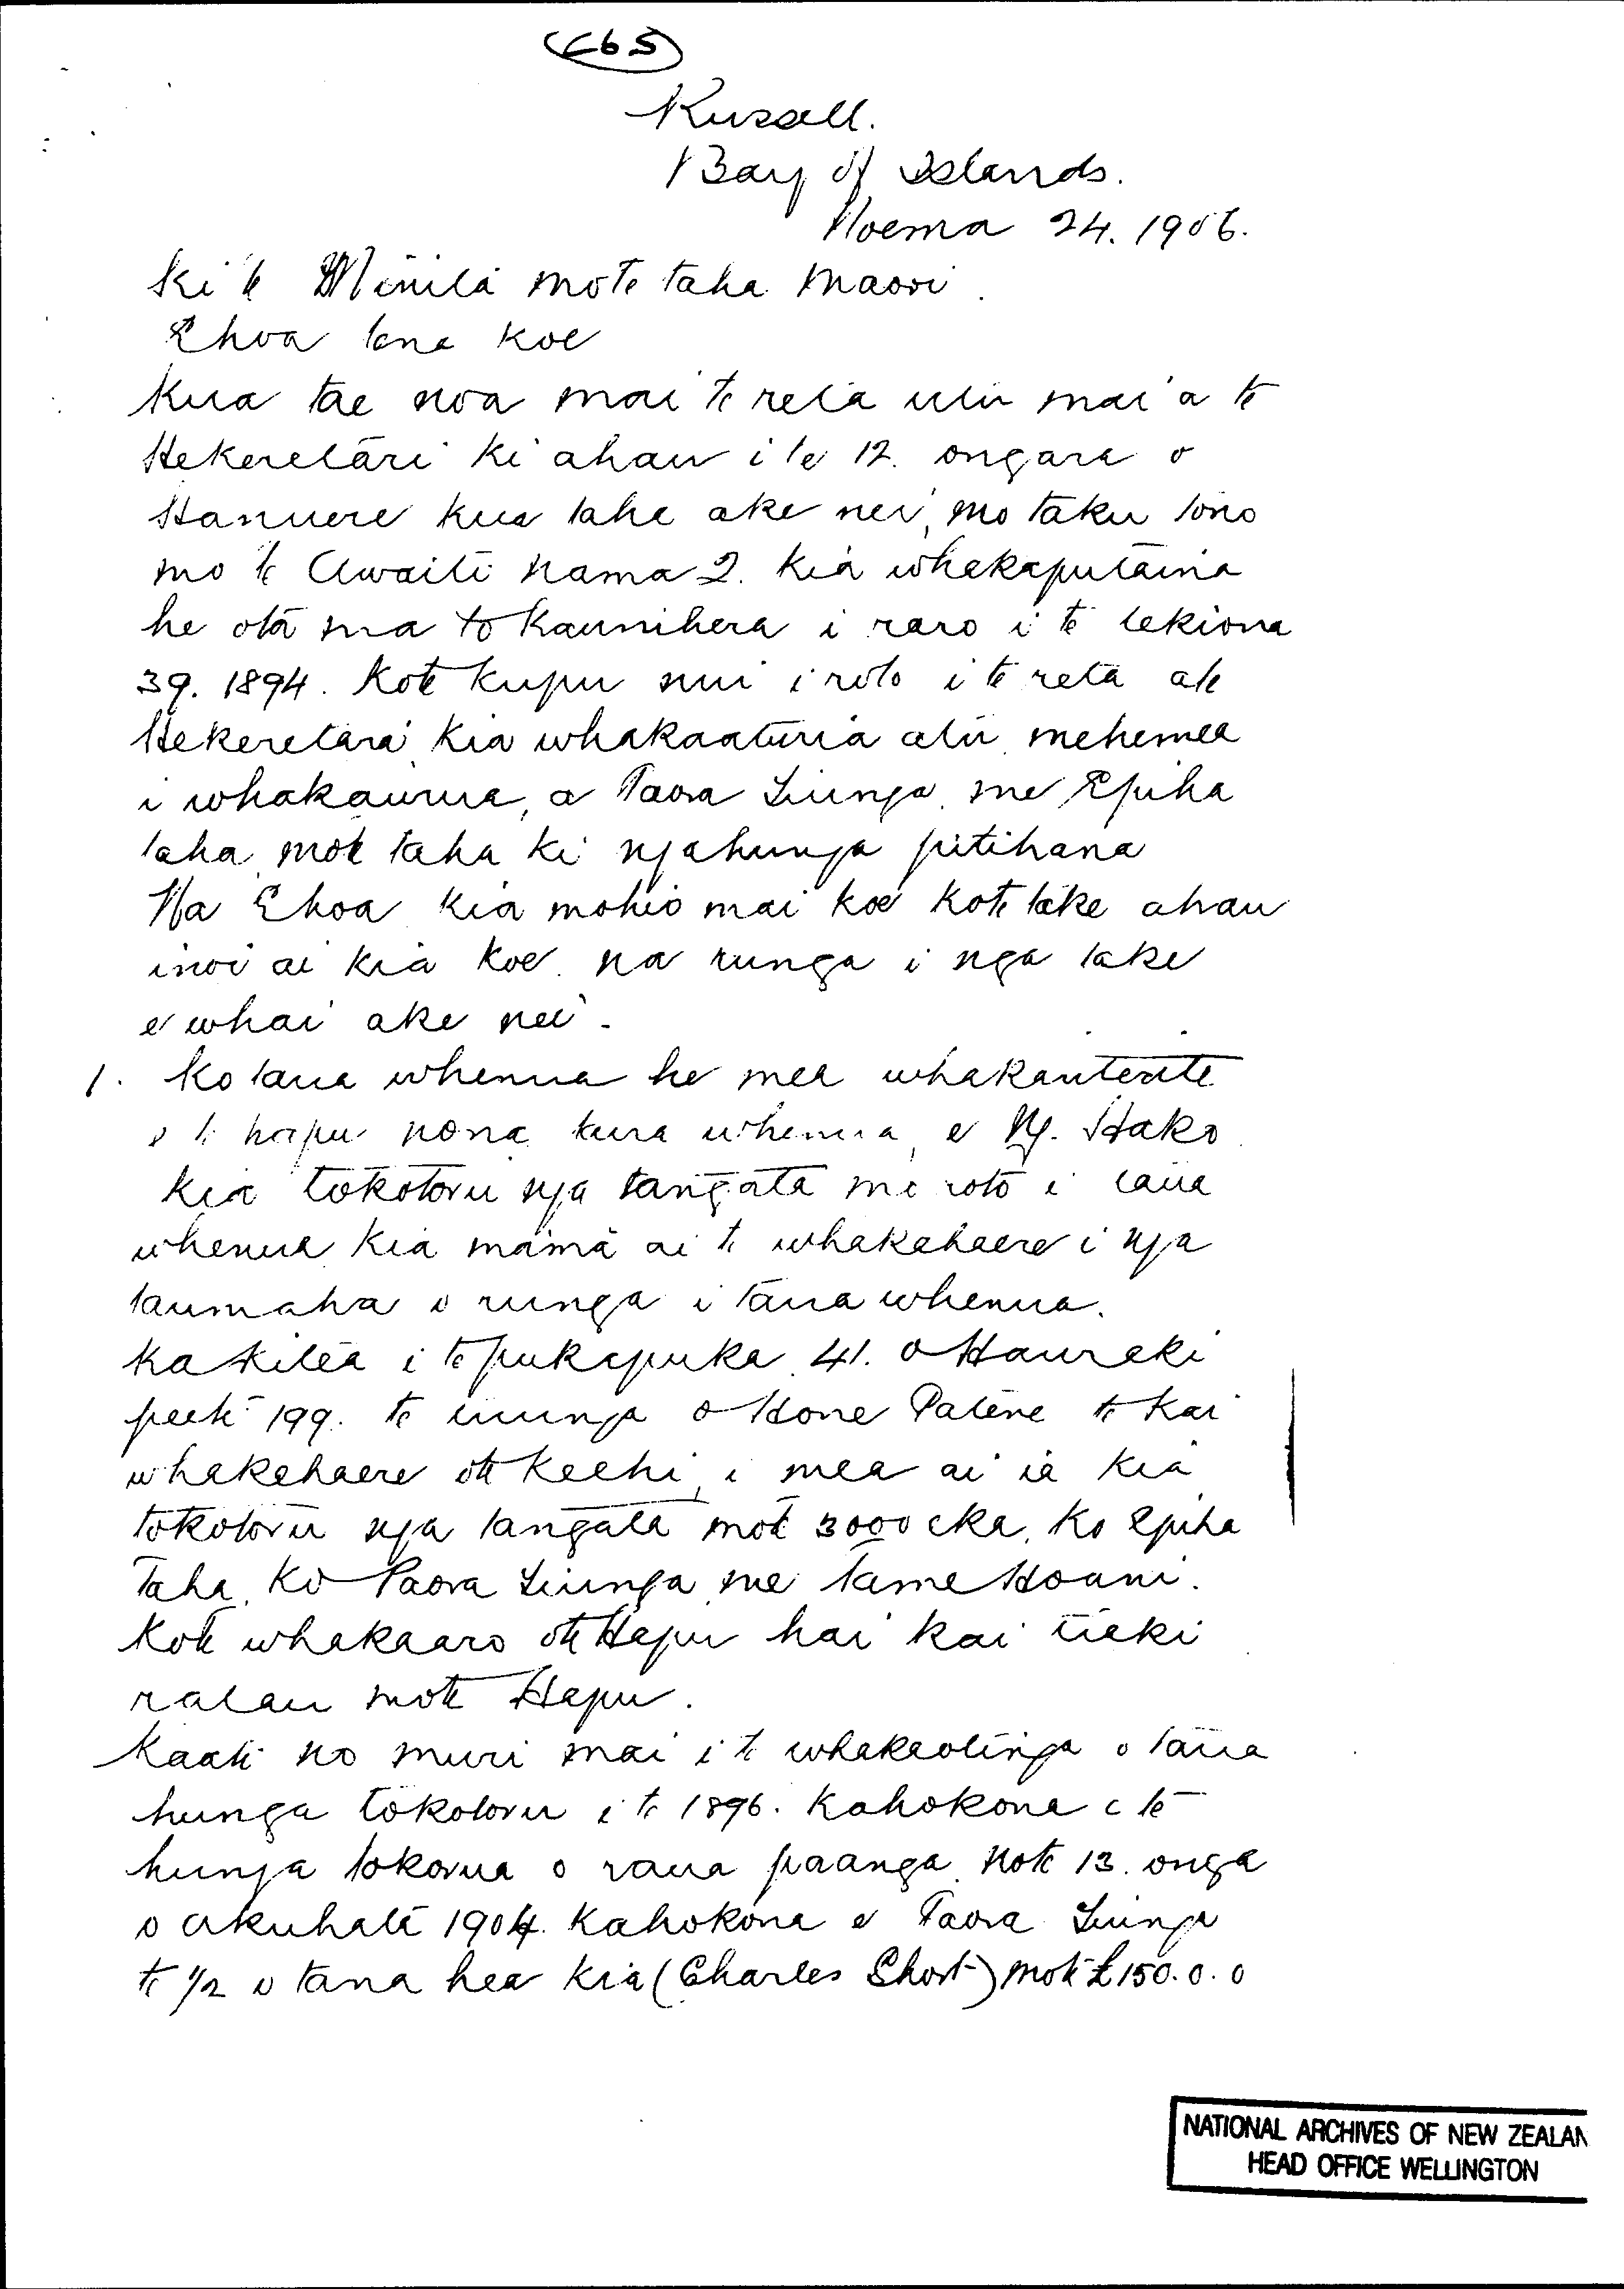 C65
Russell.
Bay of Islands.
Noema 24. 1906.
Ki te Minita mote taha Maori.
Ehoa tena koe
Kua tae noa mai te reta utu mai a te
Hekeretari ki ahau i te 12. ongara o
Hanuere kua taha ake nei, mo taku tono
mo te Awaiti Nama 2. kia whakaputaina
he ota ma to Kaunihera i raro i te tekiona
39. 1894. Kote kupu nui i roto i te reta ate
Hekeretari kia whakaaturia atu mehemea
i whakaurua, a Paora Tiunga me Epiha
Taha, mote taha ki ngahunga pitihana
Na Ehoa kia mohio mai koe kote take ahau
inoi ai kia koe na runga i nga take
e whai ake nei.
1. Ko taua whenua he mea whakariterite
e te hapu nona taua whenua, e Ng. Hako
kia tokotoru nga tangata mo roto i taua
whenua kia mama ai te whakahaere i nga
taumaha o runga i taua whenua.
Ka kitea i te pukapuka 41. o Hauraki
peeti 199. te tuunga o Hone Patene te kai
whakahaere ote keehi, i mea ai ia kia
tokotoru nga tangata mote 3000 eka, Ko Epiha
Taha, Ko Paora Tiunga, me Tame Hoani.
Kote whakaaro ote Hapu hai kai tiaki
ratau mote Hapu.
Kaati no muri mai i te whakaotinga o taua
hunga tokotoru i te 1896. Kahokona e te
hunga tokorua o raua paanga. Note 13. onga
o Akuhata 1904. Kahokona e Paora Tiunga
te 1/2 o tana hea kia (Charles Short) mote £150.0.0
NATIONAL ARCHIVES OF NEW ZEALAN
HEAD OFFICE WELLINGTON